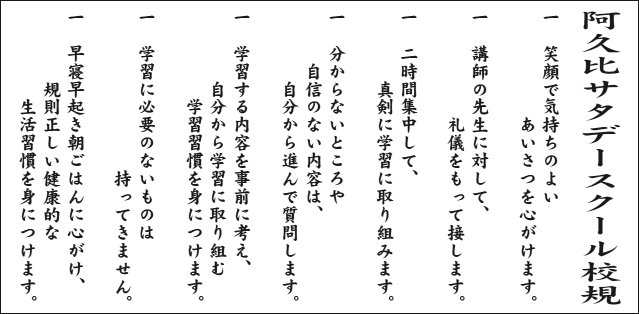 阿久比サタデースクール校規
一　笑顔で気持ちのよい
あいさつを心がけます。
一　講師の先生に対して、
礼儀をもって接します。
一　二時間集中して、
真剣に学習に取り組みます。
一　分からないところや
自信のない内容は、
自分から進んで質問します。
一　学習する内容を事前に考え、
自分から学習に取り組む
学習習慣を身につけます。
一　学習に必要のないものは
持ってきません。
一　早寝早起き朝ごはんに心がけ、
規則正しい健康的な
生活習慣を身につけます。